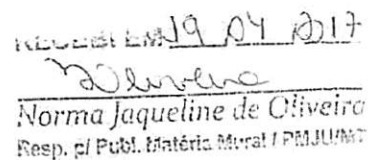 RECEBI EM 19 04 2017
Oliveira
Norma Jaqueline de Oliveira
Resp. p/ Publ. Matéria Mural / PMJU/MT